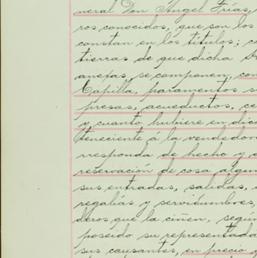 neral Don Angel Frias,
ros conocidos, que son los
constan en los títulos; c
tierras de que dicha
anejas, se componen, con
Capilla, paramentos s
presas, acueductos, ce
y cuanto hubiere en dic
teneciente á la vendedor
rresponda de hecho y d
reservación de cosa algun
sus entradas, salidas,
regalías y servidumbres,
deros que la ciñen, segun
poseido su representada
sus causantes, en precio y